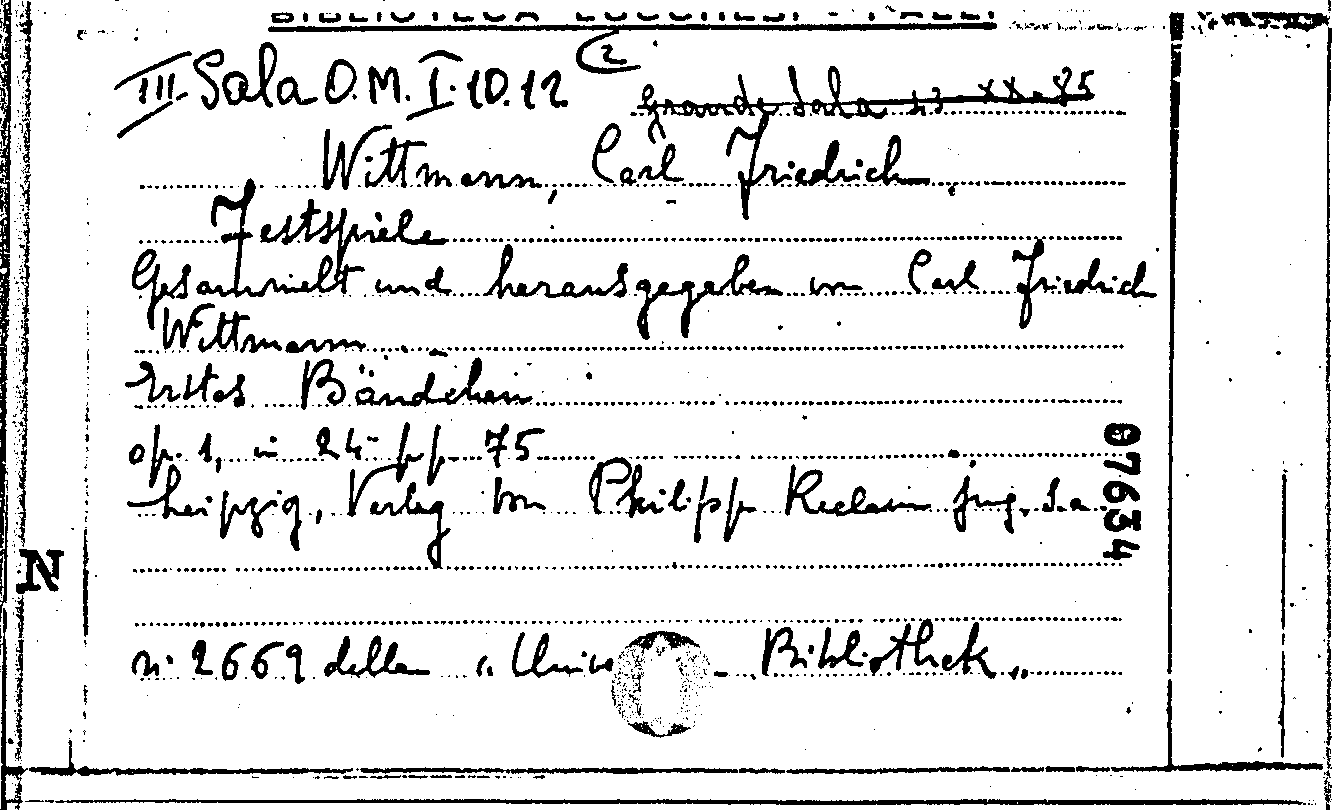 BIBLIOTECA LUCCHESI - PALLI
III Sala O.M. I. 10. 12 (2
Grande Sala 23-XX-85
Wittmann, Carl Friedrich.
Festspiele
Gesammelt und herausgegeben von Carl Friedrich
Wittmann.
Erstes Bändchen
op. 1, in 24- pp. 75
Leipzig, Verlag von Philipp Reclam jug. s.a.
07634
N
n. 2669 della "Unive - Bibliothek"